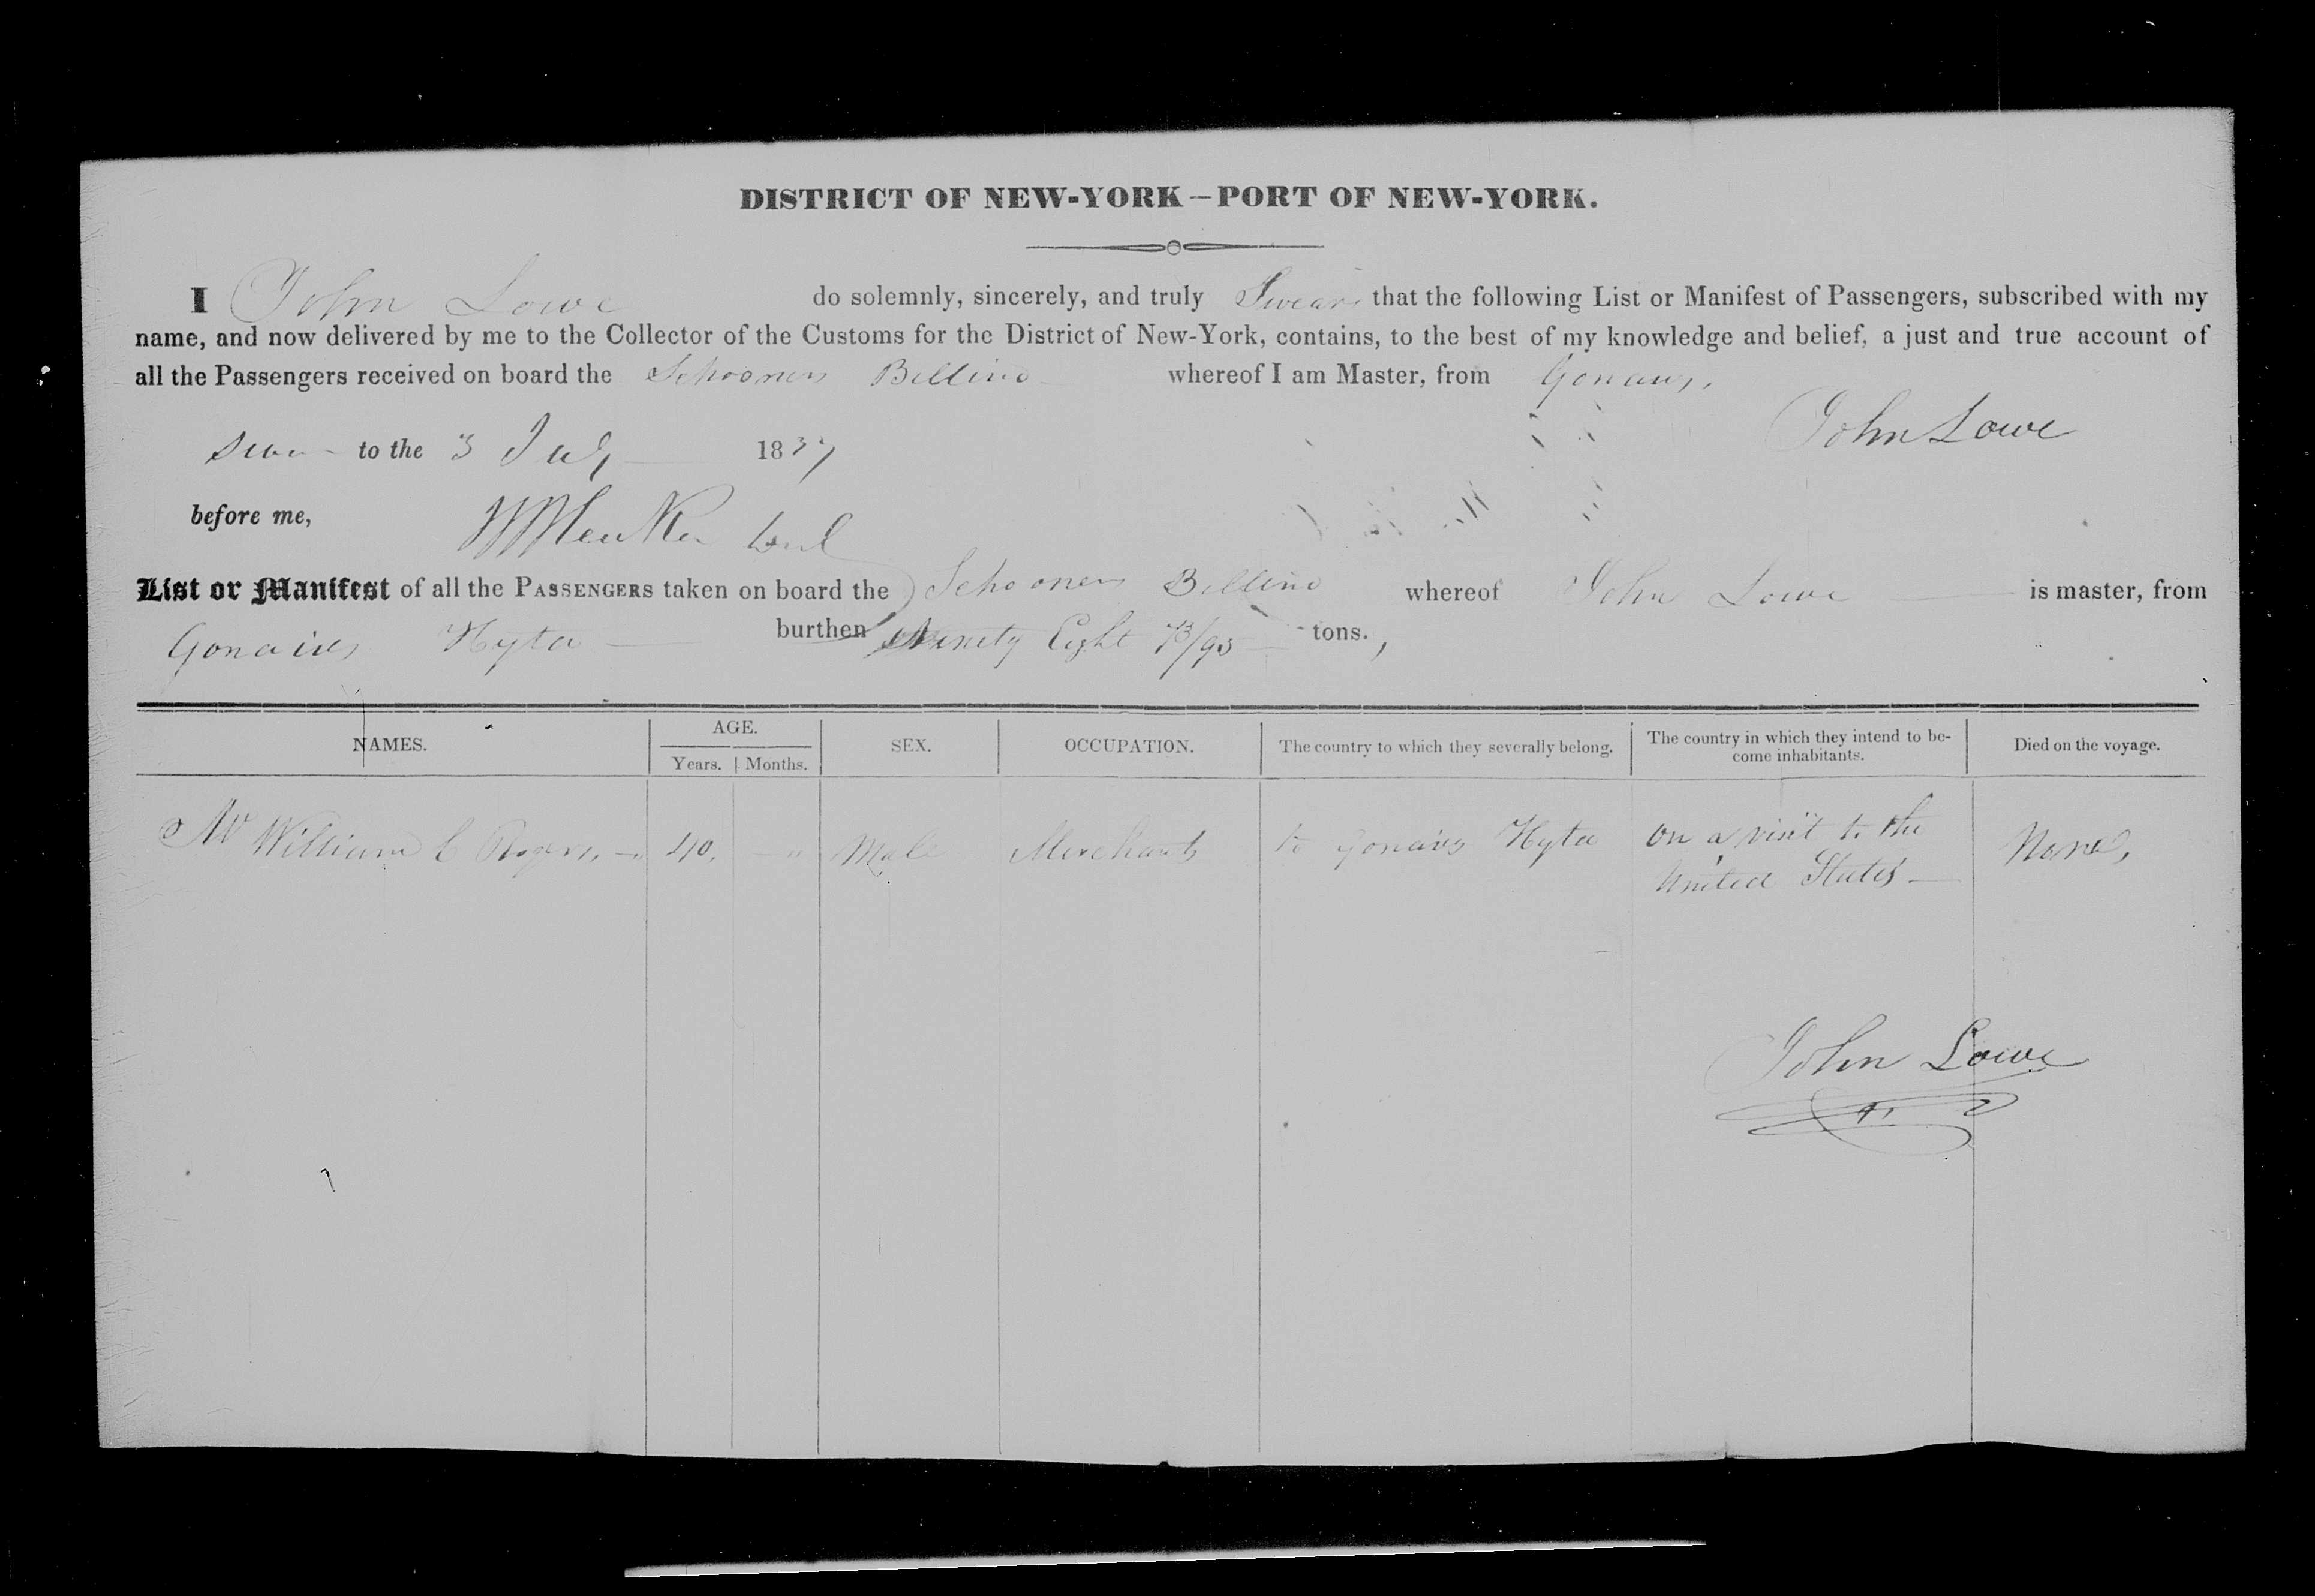 DISTRICT OF NEW-YORK—PORT OF NEW-YORK.
I John Lowe do solemnly, sincerely, and truly Swear that the following List or Manifest of Passengers, subscribed with my
name, and now delivered by me to the Collector of the Customs for the District of New-York, contains, to the best of my knowledge and belief, a just and true account of
all the Passengers received on board the Schooner Bellino whereof I am Master, from Gonaives,
John Lowe
to the 3 July 1837
before me,
List or Manifest of all the PASSENGERS taken on board the Schooner Bellino whereof John Lowe is master, from
Gonaives Hyta burthen Ninety Eight 73/95 tons.,
NAMES. AGE. SEX. OCCUPATION. The country to which they severally belong. The country in which they intend to be-
come inhabitants. Died on the voyage.
Years. Months.
Mr William C Rogers 40. " Male Merchant to Gonaives Hyta on a visit to the
United States None,
John Lowe